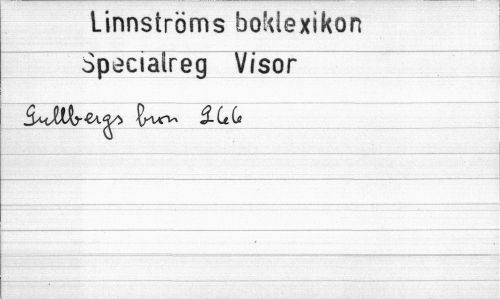 Linnströms boklexikon
Specialreg Visor
Gullbergs bron 266